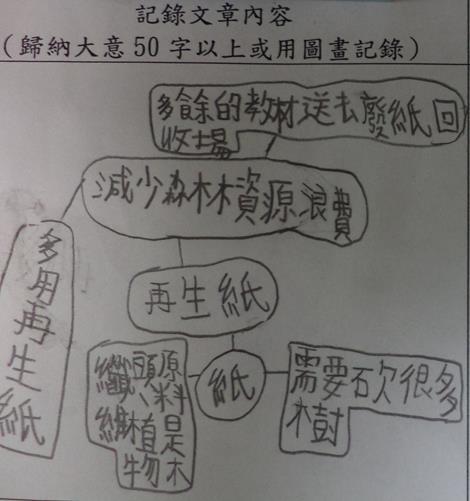 記錄文章內容
（歸納大意50字以上或用圖畫記錄）
多餘的教材送去廢紙回
收場
減少森林資源浪費
多用再生紙
再生紙
紙
原料是木
頭、植物
纖維
需要砍很多
樹